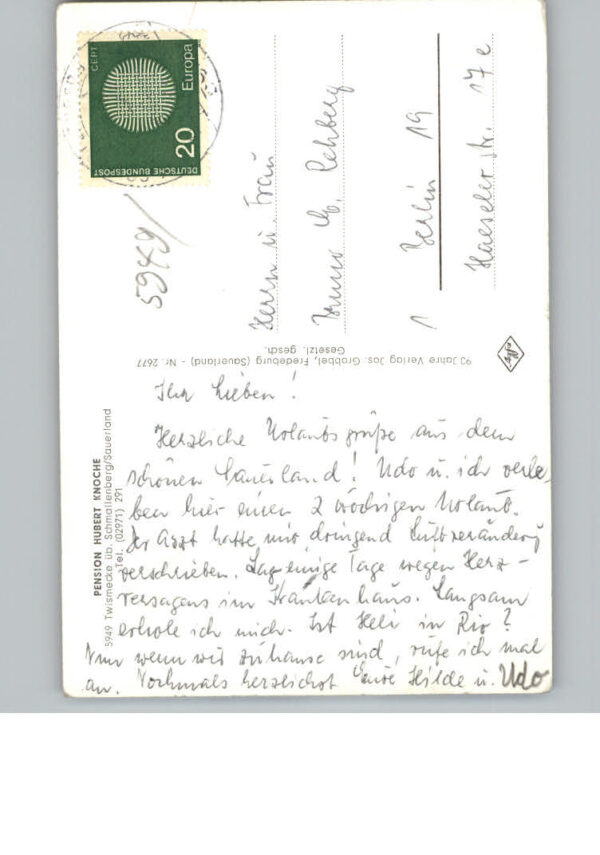 Ihr Lieben!
Herzliche Urlaubsgrüße aus dem
schönen Sauerland! Udo u. ich verle-
ben hier einen 2 wöchigen Urlaub.
Der Arzt hatte mir dringend Luftveränderg
verschrieben. Lag einige Tage wegen Herz-
versagens im Krankenhaus. Langsam
erhole ich mich. Ist Heli in Rio?
Nun wenn wir zuhause sind, rufe ich mal
an. Nochmals herzlichst Eure Hilde u. Udo
PENSION HUBERT KNOCHE
5949 Twismecke üb. Schmallenberg/Sauerland
Tel. (02971) 291
93 Jahre Verlag Jos. Grobbel, Fredeburg (Sauerland) - Nr. 2677
Gesetzl. gesch.
CEPT
Europa
20
DEUTSCHE BUNDESPOST
5949/
Herrn u. Frau
Bruno Rehberg
1 Berlin 19
Haeseler str. 17e